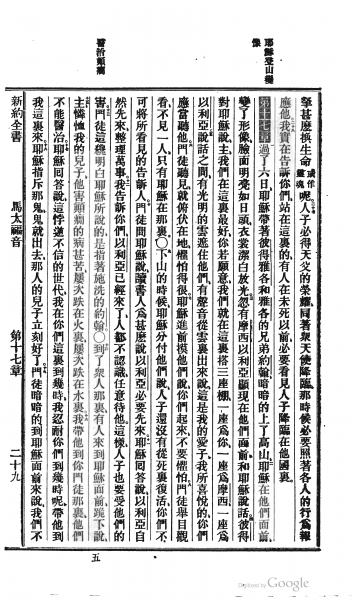 耶穌登山變像
醫治癲癇
拏甚麼換生命 或作靈魂 呢人子必得天父的榮耀同著衆天使降臨那時候必要照著各人的行爲報
應他我實在告訴你們站在這裏的有人在未死以前必要看見人子降臨在他國裏
第十七章過了六日耶穌帶著彼得雅各和雅各的兄弟約翰暗暗的上了高山耶穌在他們面前
變了形像臉面明亮如日頭衣裳潔白放光忽有摩西以利亞顯現在他們面前和耶穌說話彼得
對耶穌說主我們在這裏最好你若願意我們就在這裏搭三座棚一座爲你一座爲摩西一座爲
以利亞說話之間有光明的雲遮住他們有聲音從雲裏出來說這是我的愛子我所喜悅的你們
應當聽他門徒聽見就俯伏在地懼怕得很耶穌進前摸他們說你們起來不要懼怕門徒舉目觀
看不見一人只有耶穌在那裏○下山的時候耶穌分付他們說人子還沒有從死裏復活你們不
可將所看見的告訴人門徒問耶穌說讀書人爲甚麼說以利亞必要先來耶穌回答說以利亞自
然先來整理萬事我告訴你們以利亞已經來了人都不認識任意待他這樣人子也要受他們的
害門徒這纔明白耶穌所說的是指著施洗的約翰○到了衆人那裏有人來到耶穌面前跪下說
主憐恤我的兒子他害癲癇的病甚苦屢次跌在火裏屢次跌在水裏我帶他到你門徒那裏他們
不能醫治耶穌回答說這悖逆不信的世代我在你們這裏到幾時我忍耐你們到幾時呢帶他到
我這裏來耶穌指斥那鬼鬼就出去那人的兒子立刻好了門徒暗暗的到耶穌面前來說我們不
新約全書 馬太福音 第十七章 二十九
五
Digitized by Google